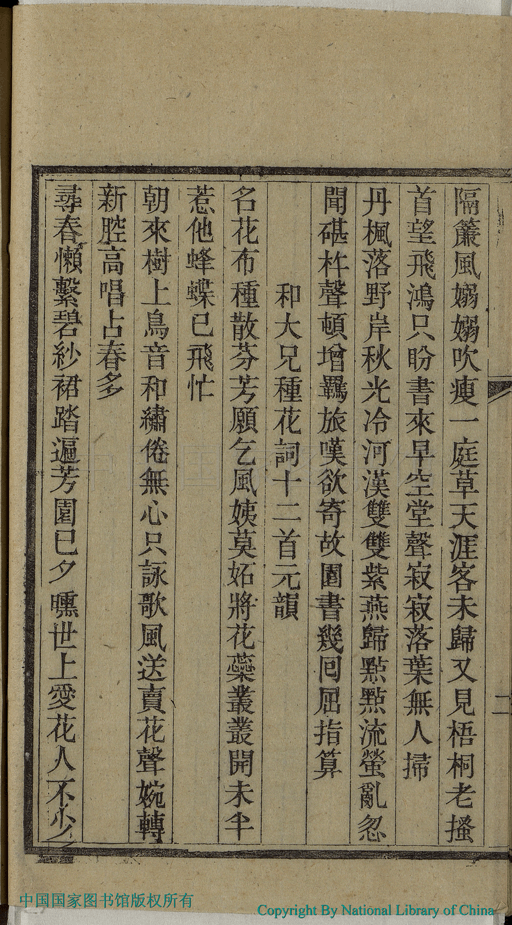 隔簾風嫋嫋吹瘦一庭草天涯客未歸又見梧桐老搔
首望飛鴻只盼書來早空堂聲寂寂落葉無人掃
丹楓落野岸秋光冷河漢雙雙紫燕歸點點流螢亂忽
聞碪杵聲頓增羈旅嘆欲寄故園書幾囘屈指算
和大兄種花詞十二首元韻
名花布種散芬芳願乞風姨莫妬將花蘂叢叢開未半
惹他蜂蝶已飛忙
朝來樹上鳥音和繡倦無心只詠歌風送賣花聲婉轉
新腔高唱占春多
尋春懶繫碧紗裙踏遍芳園已夕曛世上愛花人不少
二
中国国家图书馆版权所有
Copyright By National Library of China